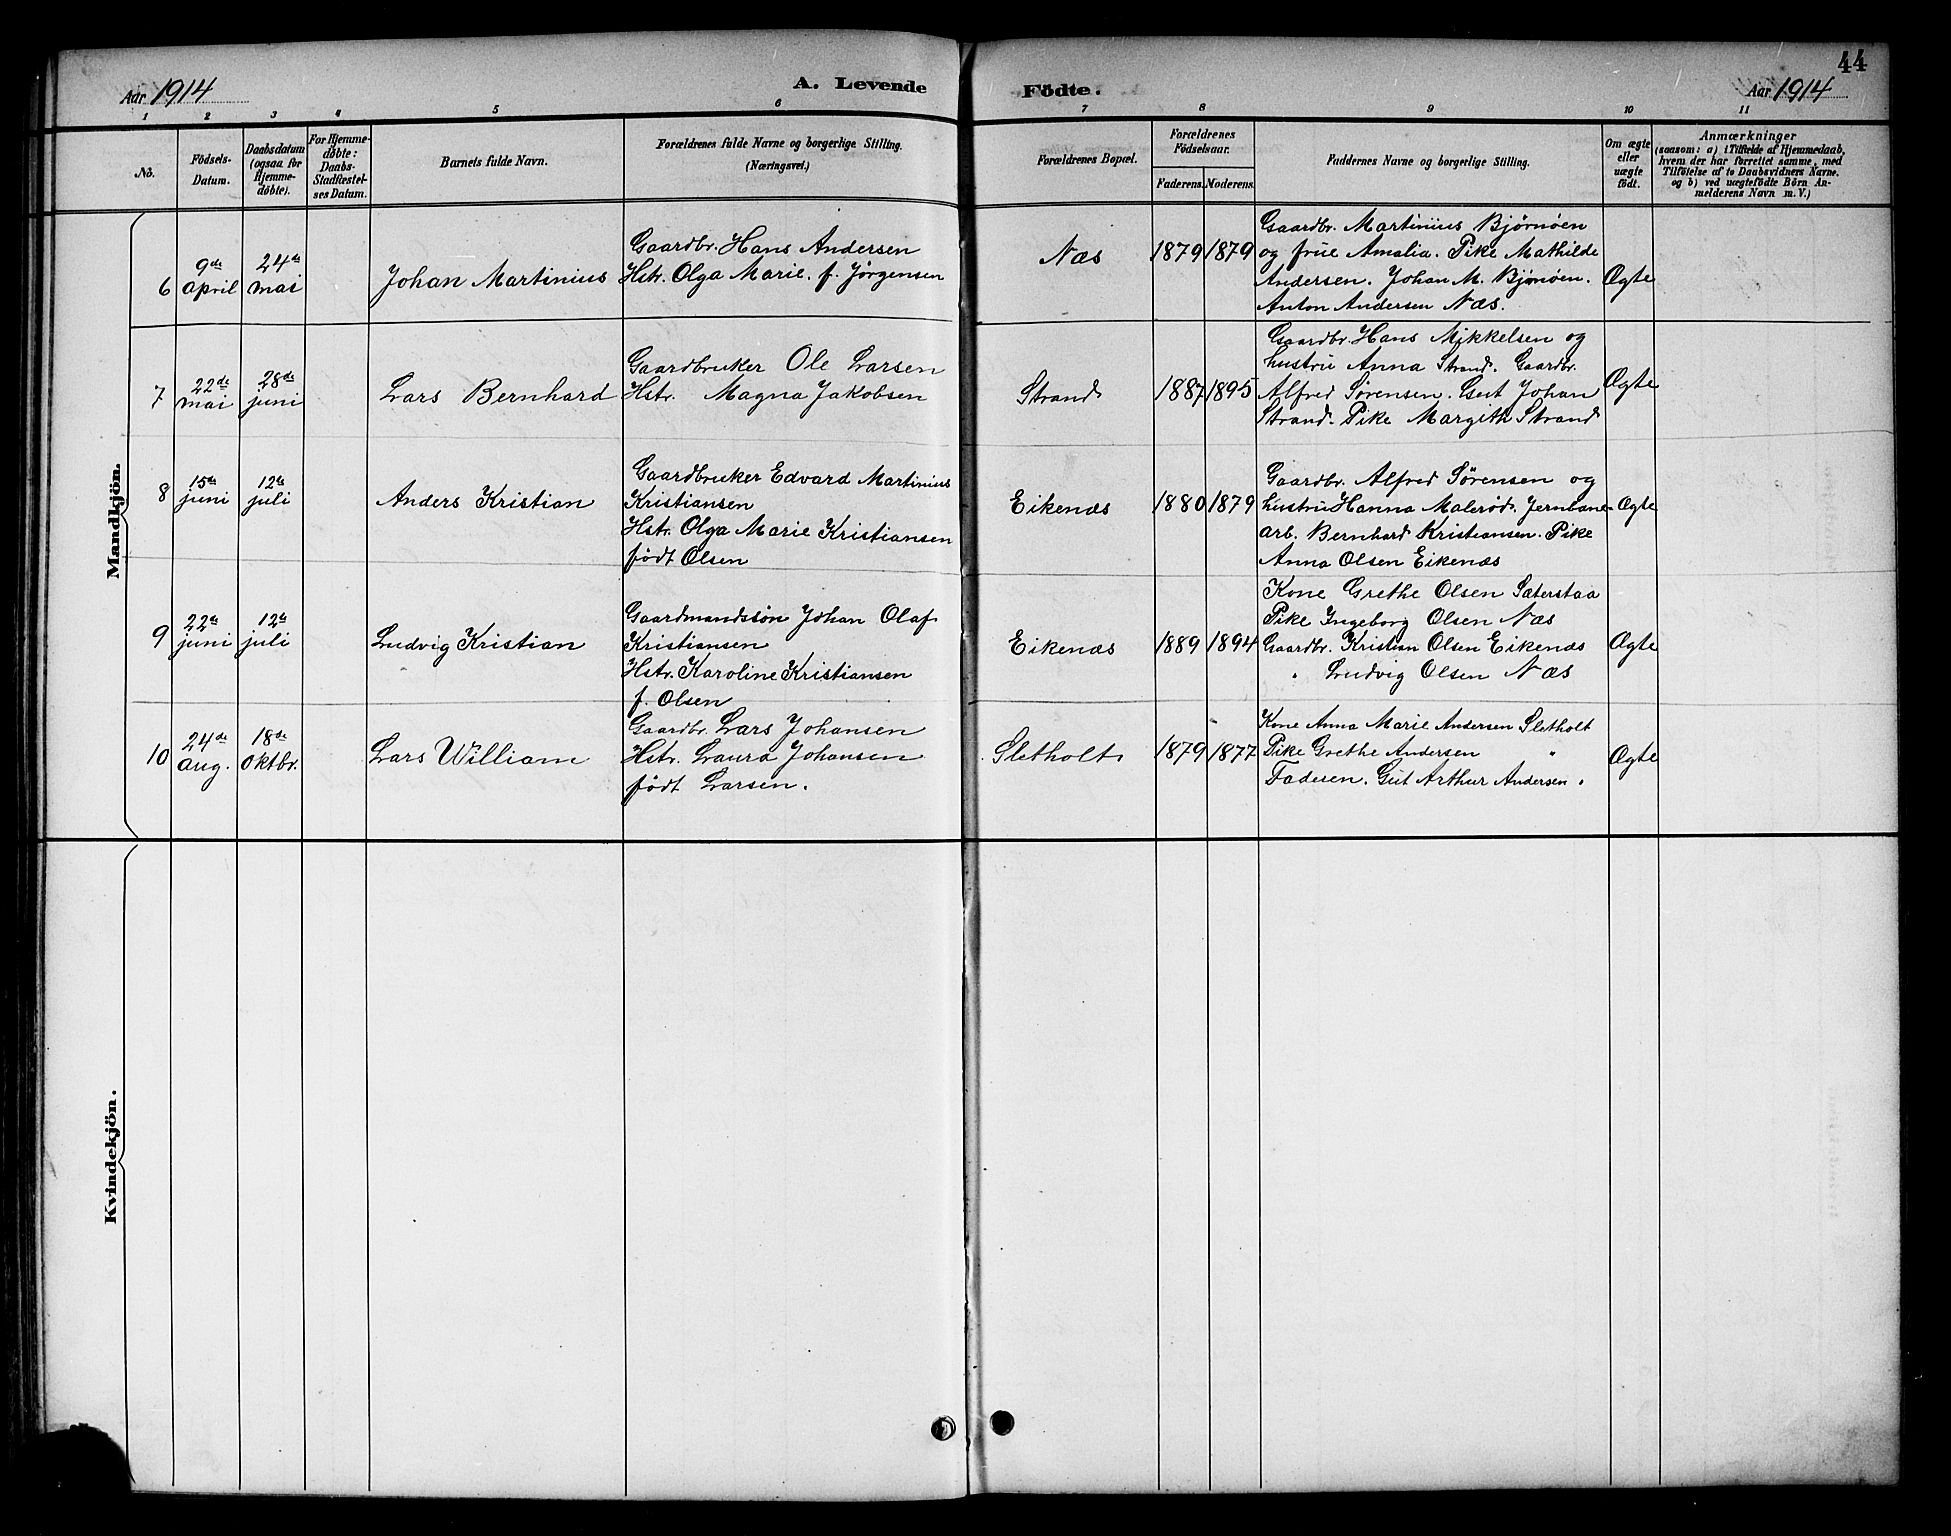 44
Aar 1914
A. Levende Födte.
Aar 1914
1 2 3 4 5 6 7 8 9 10 11
No.
Födsels-
Datum.
Daabsdatum
(ogsaa for
Hjemme-
döbte).
For Hjemme-
döbte:
Daabs-
Stadfæstel-
ses Datum.
Barnets fulde Navn.
Forældrenes fulde Navne og borgerlige Stilling.
(Næringsvei.)
Forældrenes Bopæl.
Forældrenes
Födselsaar.
Faderens. Moderens.
Faddernes Navne og borgerlige Stilling.
Om ægte
eller
uægte
födt.
Anmærkninger
(saasom: a) i Tilfælde af Hjemmedaab,
hvem der har forrettet samme, med
Tilföielse af to Daabsvidners Navne.
og b) ved uægtefödte Börn An-
melderens Navn m. V.)
Mandkjön.
6
9de
april
24de
mai
Johan Martinius
Gaardbr. Hans Andersen
Hstr. Olga Marie. f. Jørgensen
Næs
1879
1879
Gaardbr. Martinius Bjørnøen
og frue Amalia. Pike Mathilde
Andersen. Johan M. Bjørnøen.
Anton Andersen Næs.
Ægte
7
22de
mai
28de
juni
Lars Bernhard
Gaardbruker Ole Larsen
Hstr. Magna Jakobsen
Strand
1887
1895
Gaardbr. Hans Mikkelsen og
hustru Anna Strand. Gaardbr.
Alfred Sørensen. Gut Johan
Strand. Pike Margith Strand
Ægte
8
15de
juni
12te
juli
Anders Kristian
Gaardbruker Edvard Martinius
Kristiansen
Hstr. Olga Marie Kristiansen
født Olsen
Eikenæs
1880
1879
Gaardbr. Alfred Sørensen og
hustru Hanna Malerød. Jernbane-
arb. Bernhard Kristiansen. Pike
Anna Olsen Eikenæs
Ægte
9
22de
juni
12te
juli
Ludvig Kristian
Gaardmandssøn Johan Olaf
Kristiansen
Hstr. Karoline Kristiansen
f. Olsen
Eikenæs
1889
1894
Kone Grethe Olsen Sæterstaa
Pike Ingeborg Olsen Næs
Gaardbr. Kristian Olsen Eikenæs
" Ludvig Olsen Næs
Ægte
10
24de
aug.
18de
oktbr.
Lars William
Gaardbr. Lars Johansen
Hstr. Laura Johansen
født Larsen.
Sletholt
1879
1877
Kone Anna Marie Andersen Sletholt
Pike Grethe Andersen "
Faderen. Gut Arthur Andersen "
Ægte
Kvindekjön.